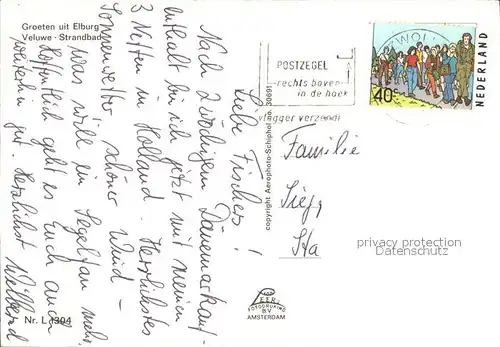 Groeten uit Elburg
Veluwe - Strandbad
Liebe Fischers!
Nach 2 wöchigem Dänemarkauf-
enthalt bin ich jetzt mit meinen
3 Neffen in Holland. Herrlichstes
Sonnenwetter, schöner Wind -
was will ein Segelfan mehr,
Hoffentlich geht es Euch auch
weiterhin gut Herzlichst
Nr. L 1304
copyright Aerophoto-Schiphol no. 30691
POSTZEGEL
rechts boven
in de hoek
vlugger verzend!
40c
NEDERLAND
Familie
privacy protection
Datenschutz
FOTODRUKING
BV
AMSTERDAM